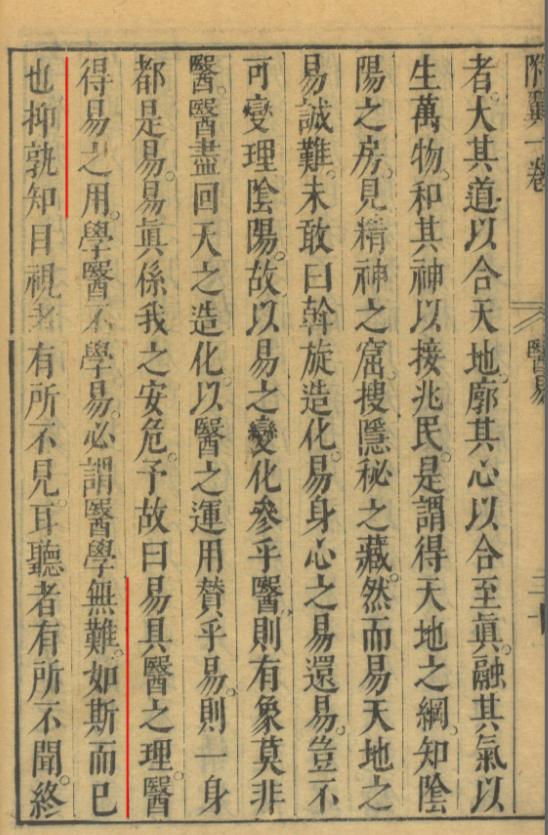 附翼一卷 醫易
者大其道以合天地。廓其心以合至眞。融其氣以
生萬物。和其神以接兆民。是謂得天地之綱。知陰
陽之房。見精神之窟。搜隱秘之藏。然而易天地之
易誠難。未敢曰斡旋造化。易身心之易還易。豈不
可變理陰陽。故以易之變化參乎醫。則有象莫非
醫。醫盡回天之造化。以醫之運用贊乎易。則一身
都是易。易眞係我之安危。予故曰易具醫之理。醫
得易之用。學醫不學易。必謂醫學無難。如斯而已
也。抑孰知目視者有所不見。耳聽者有所不聞。終